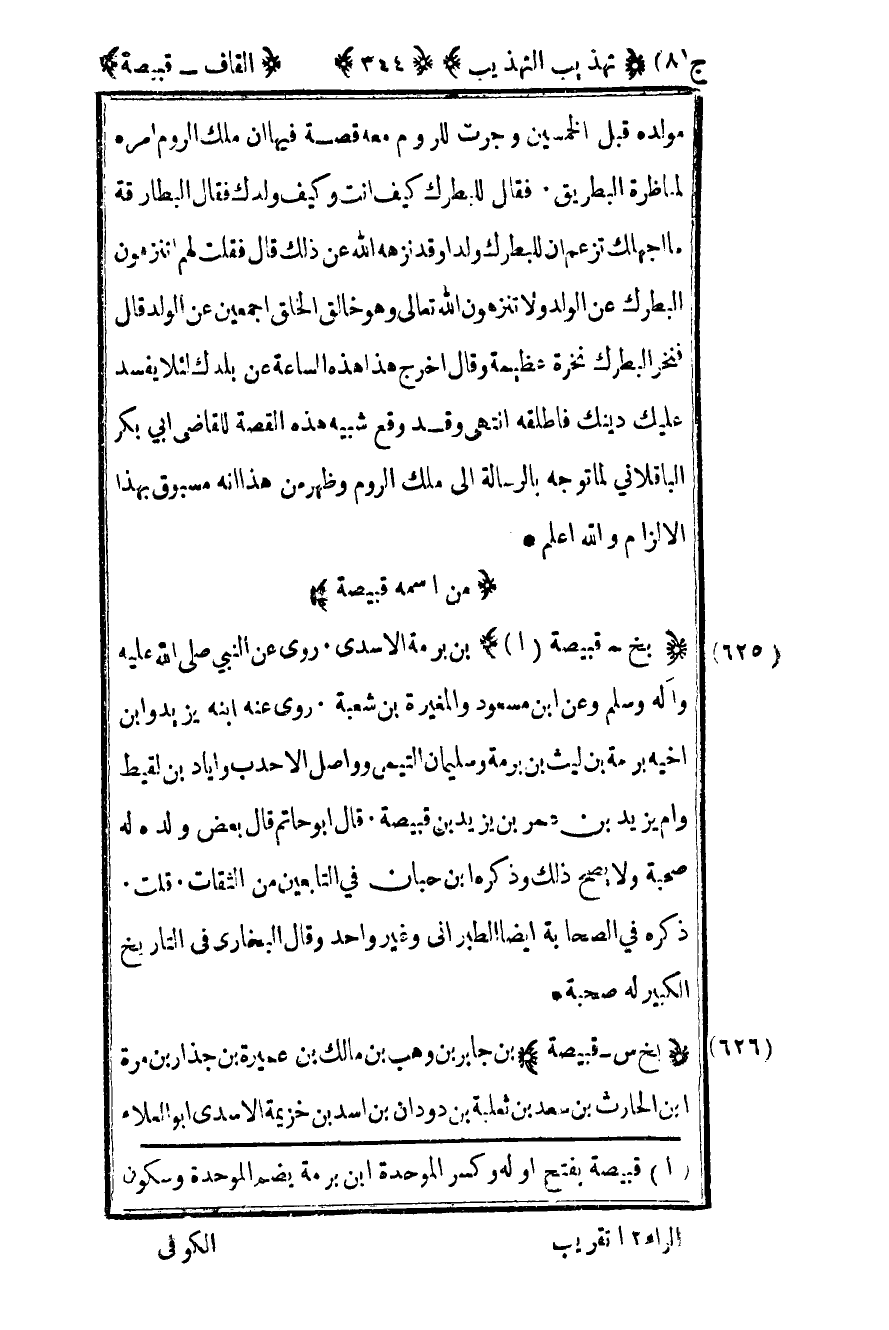 ج (٨) ﴿ تهذيب التهذيب ﴾ ﴿ ٣٤٤ ﴾ ﴿ القاف ــ قبيصة ﴾
مولده قبل الخمسين وجرت للروم معه قصة فيها ان ملك الروم امره
لمناظرة البطريق · فقال للبطرك كيف انت وكيف ولدك فقال البطارقة
ما اجهلك تزعم ان للبطرك ولدا وقد نزهه الله عن ذلك قال فقلت لهم اتنزهون
البطرك عن الولد ولا تنزهون الله تعالى وهو خالق الخلق اجمعين عن الولد قال
فنخر البطرك نخرة عظيمة وقال اخرج هذا هذه الساعة عن بلدك لئلا يفسد
عليك دينك فاطلقه انتهى وقد وقع شبيه هذه القصة للقاضى ابي بكر
الباقلاني لما توجه بالرسالة الى ملك الروم وظهر من هذا انه مسبوق بهذا
الالزام والله اعلم •
﴿ من اسمه قبيصة ﴾
(٦٢٥) ﴿ بخ ــ قبيصة (١) ﴾ بن برمة الاسدى · روى عن النبي صلى الله عليه
وآله وسلم وعن ابن مسعود والمغيرة بن شعبة · روى عنه ابنه يزيد وابن
اخيه برمة بن ليث بن برمة وسليمان التيمى وواصل الاحدب واياد بن لقيط
وام يزيد بن عمر بن يزيد بن قبيصة · قال ابو حاتم قال بعض ولده له
صحبة ولا يصح ذلك وذكره ابن حبان في التابعين من الثقات · قلت ·
ذكره في الصحابة ايضا الطبرانى وغير واحد وقال البخارى فى التاريخ
الكبير له صحبة •
(٦٢٦) ﴿ بخ س ــ قبيصة ﴾ بن جابر بن وهب بن مالك بن عميرة بن جذار بن مرة
ابن الحارث بن سعد بن ثعلبة بن دودان بن اسد بن خزيمة الاسدى ابو العلاء
(١) قبيصة بفتح اوله وكسر الموحدة ابن برمة بضم الموحدة وسكون
الراء ١٢ تقريب
الكوفى